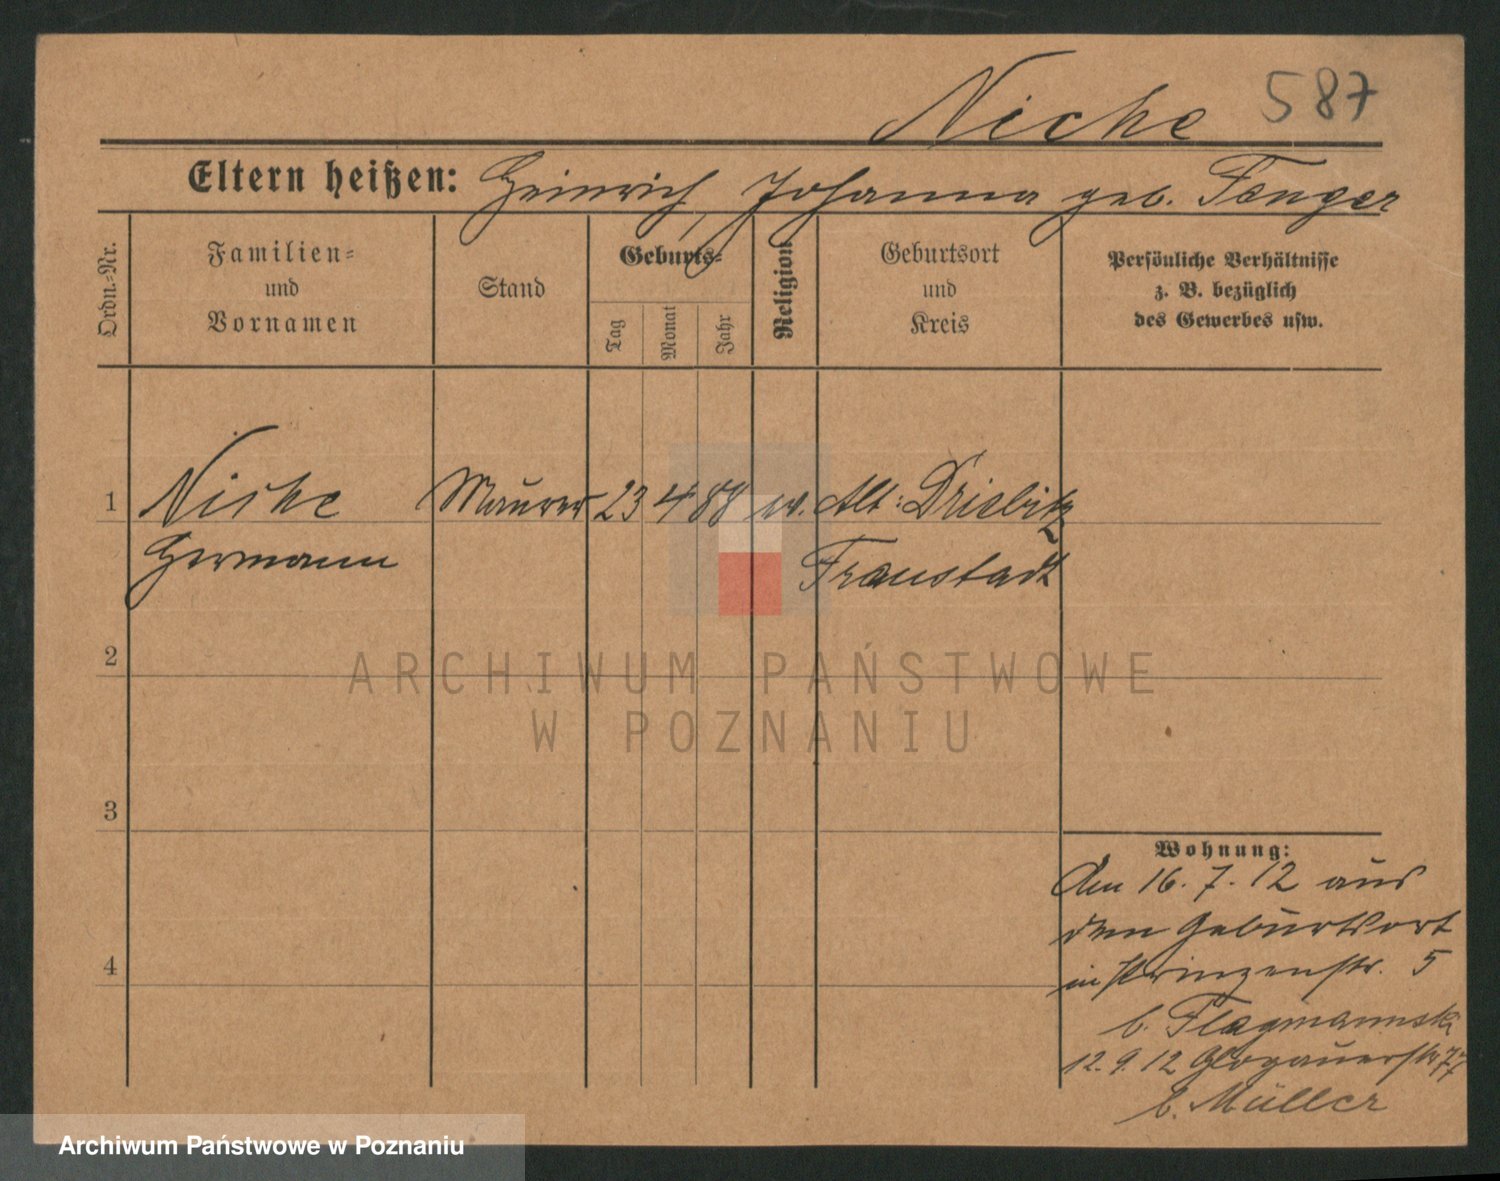 Niche 587
Eltern heißen: Heinrich, Johanna geb. Fenger
Ordn.-Nr.
Familien-
und
Vornamen
Stand
Geburts-
Tag
Monat
Jahr
Religion
Geburtsort
und
Kreis
Persönliche Verhältnisse
z. B. bezüglich
des Gewerbes usw.
1 Niche Maurer 23 4 88 ev. Alt: Driebitz
Hermann Fraustadt
2
ARCHIWUM PAŃSTWOWE
W POZNANIU
3
Wohnung:
Am 16. 7. 12 aus
dem Geburtsort
in Prinzenstr. 5
b. Flagmannski
4
12. 9. 12 Glogauerstr 77
b. Müller
Archiwum Państwowe w Poznaniu